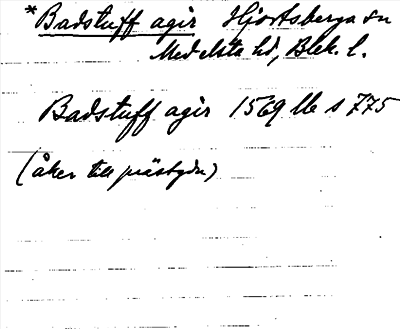 *Badstuff agir Hjortsberga sn
Medelsta hd, Blek. l.
Badstuff agir 1569 lb s 775
(åker till prästgdn)